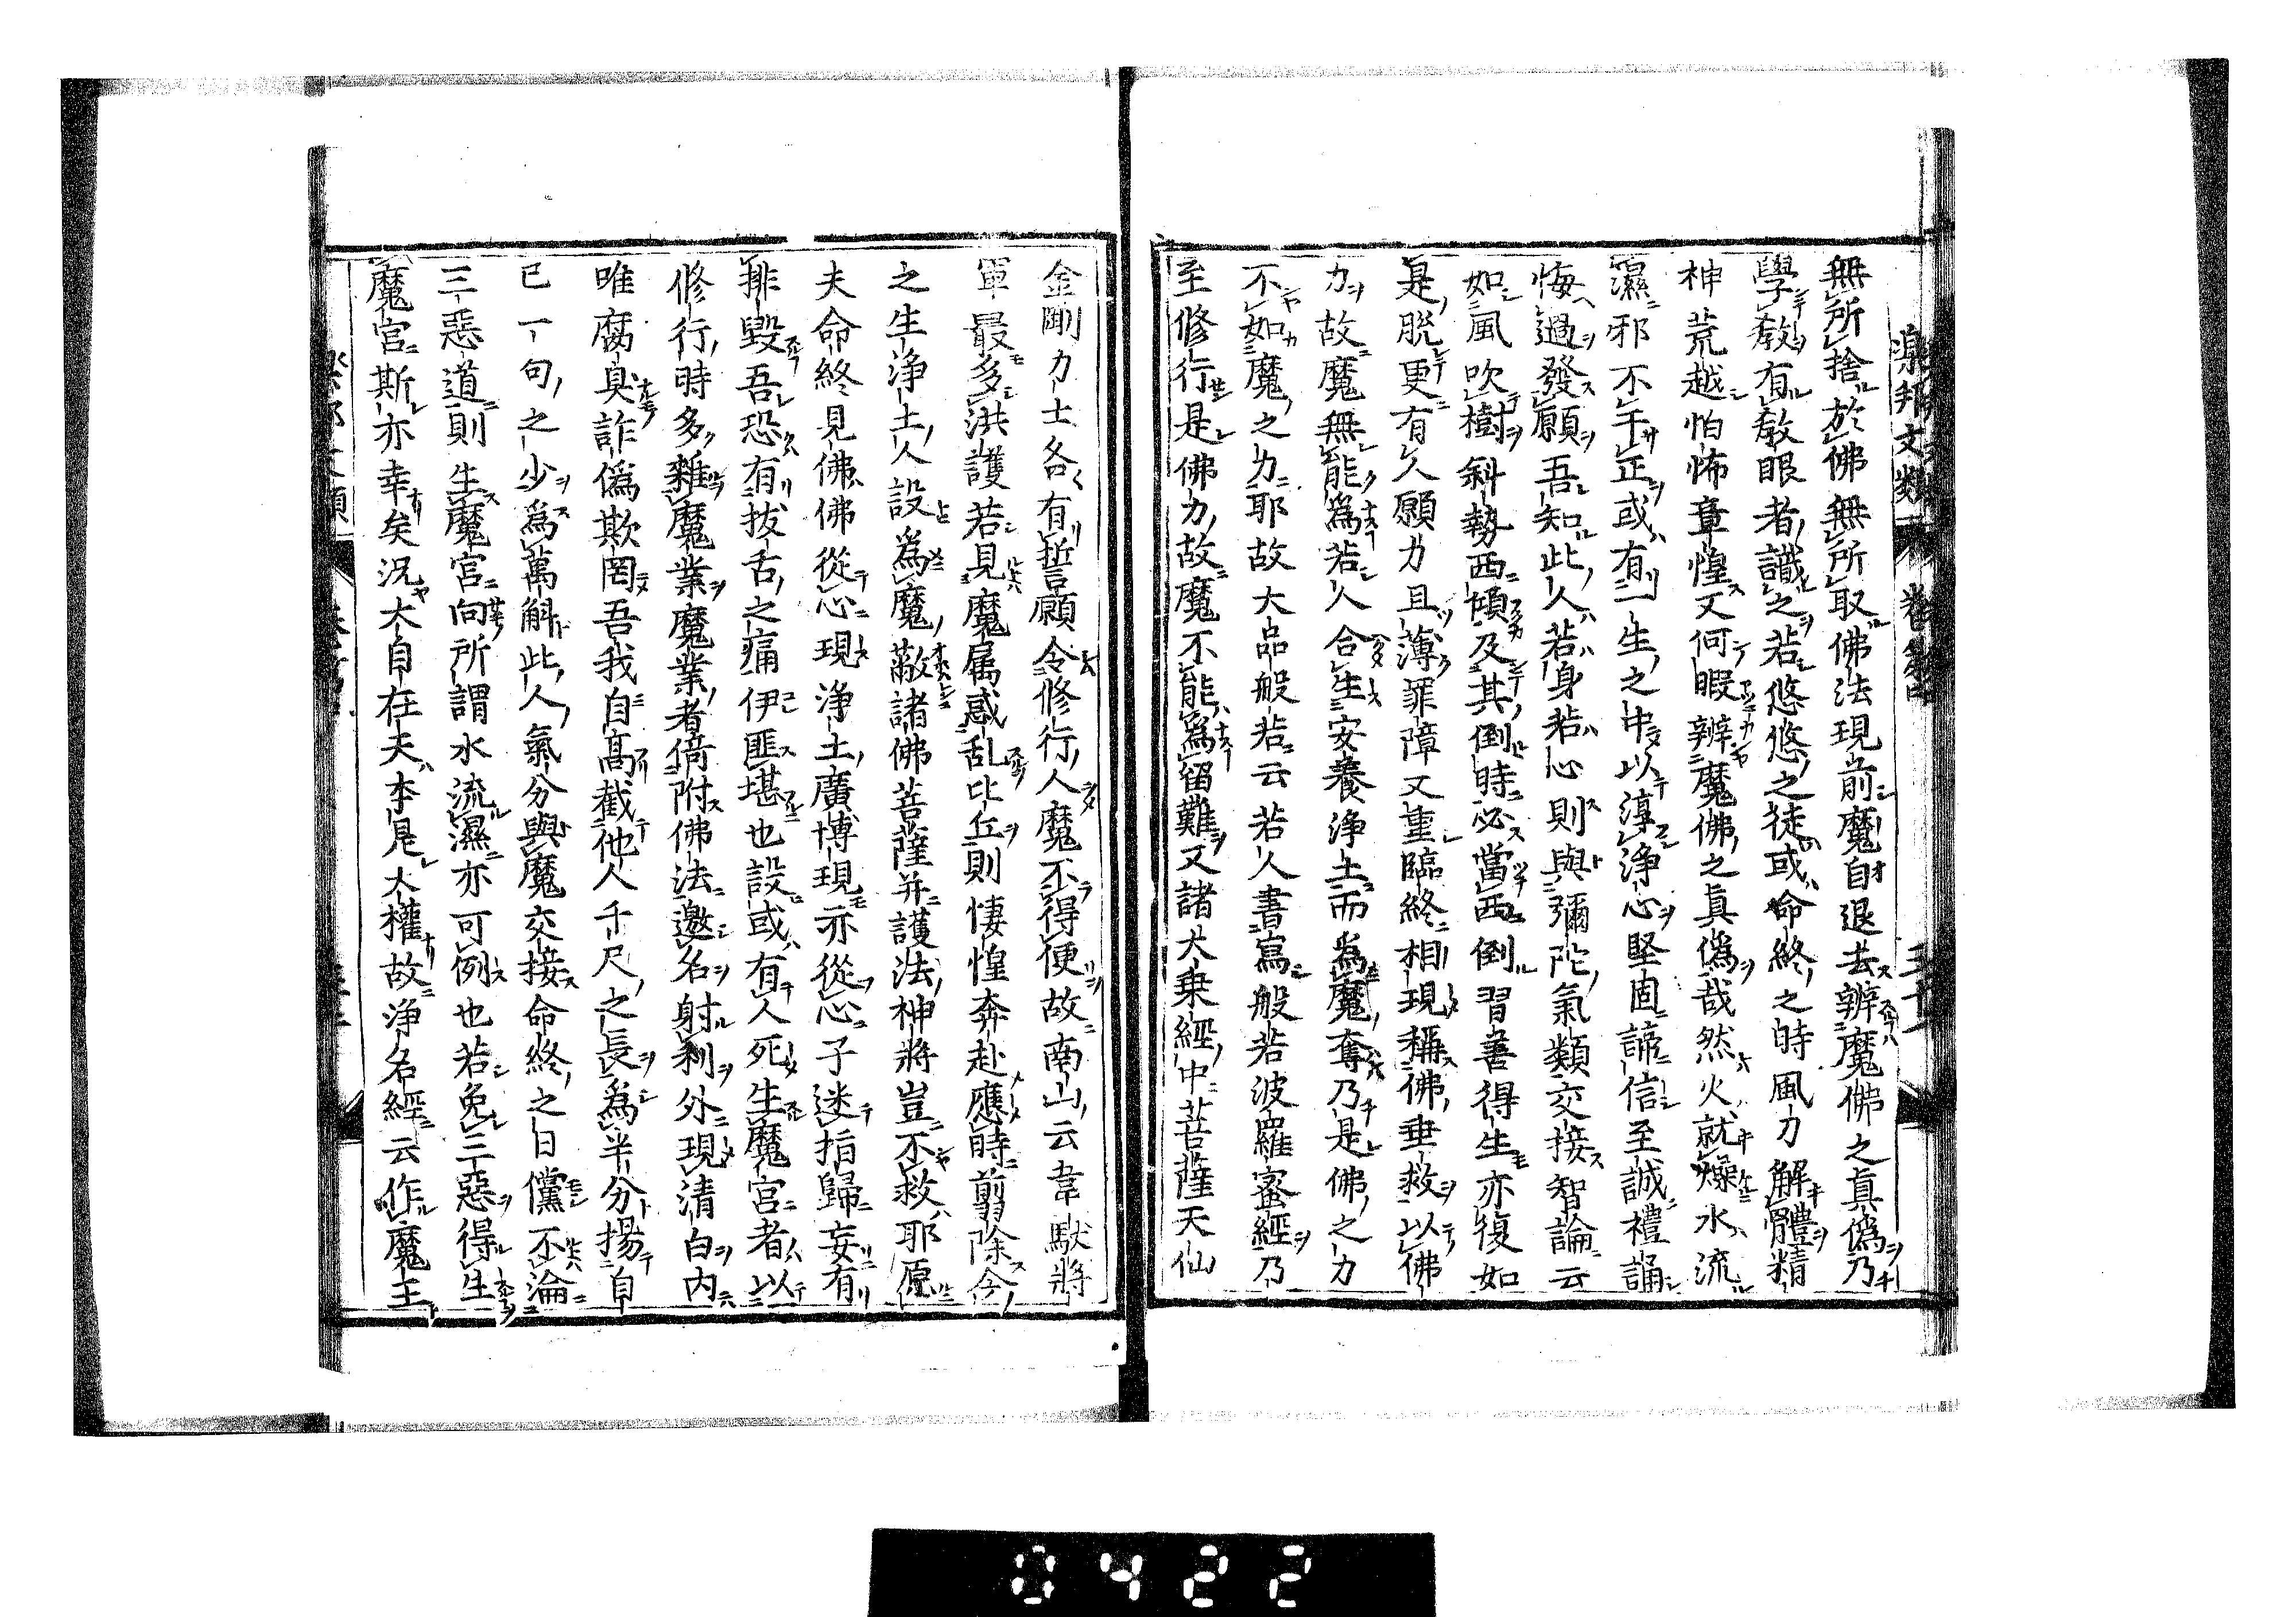 樂邦文類 卷第四
無所捨於佛無所取佛法現前魔自退去辨魔佛之真僞乃
學教有教眼者識之若悠悠之徒或命終之時風力解體精
神荒越怕怖章惶又何暇辨魔佛之眞僞哉然火就燥水流
濕邪不干正或有一生之中以淳淨心堅固諦信至誠禮誦
悔過發願吾知此人若身若心則與彌陀氣類交接智論云
如風吹樹斜勢西傾及其倒時必當西倒習善得生亦復如
是脫更有人願力且薄罪障又重臨終相現稱佛垂救以佛
力故魔無能為若人合生安養淨土而為魔奪乃是佛之力
不如魔之力耶故大品般若云若人書寫般若波羅蜜經乃
至修行是佛力故魔不能為留難又諸大乗經中菩薩天仙
金剛力士各有誓願令修行人魔不得便故南山云韋馱將
軍最多洪護若見魔属惑乱比丘則悽惶奔赴應時剪除今
之生淨土人設為魔蔽諸佛菩薩并護法神將豈不救耶原
夫命終見佛佛從心現淨土廣博現亦從心子迷指歸妄有
排毀吾恐有拔舌之痛伊匪堪也設或有人死生魔宮者以
修行時多雜魔業魔業者倚附佛法邀名射利外現清白内
唯腐臭詐僞欺罔吾我自高截他人千尺之長為半分揚自
已一句之少為萬斛此人氣分與魔交接命終之日儻不淪
三惡道則生魔宮向所謂水流濕亦可例也若免三惡得生
魔宮斯亦幸矣況大自在天本是大權故淨名經云作魔王